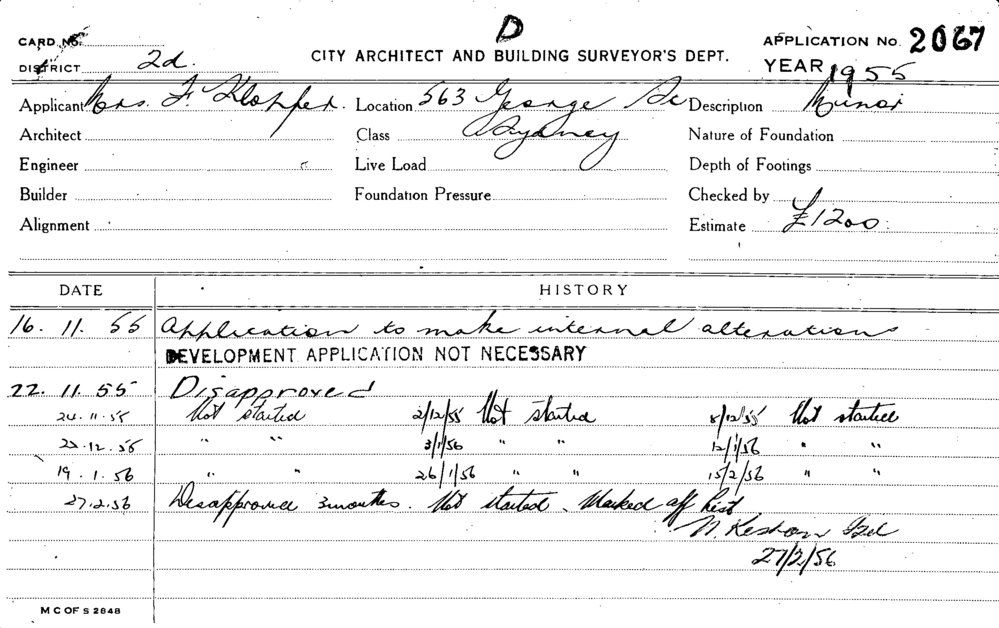 D
CARD No.
APPLICATION No. 2067
DISTRICT 2d.
CITY ARCHITECT AND BUILDING SURVEYOR'S DEPT.
YEAR 1955
Applicant Mrs. F. Klopfer. Location 563 George St Description Minor
Architect Class Sydney Nature of Foundation
Engineer Live Load Depth of Footings
Builder Foundation Pressure Checked by
Alignment Estimate £1200
DATE HISTORY
16. 11. 55 Application to make internal alterations
DEVELOPMENT APPLICATION NOT NECESSARY
22. 11. 55 Disapproved
24. 11. 55 Not started 2/12/55 Not started 8/12/55 Not started
22.12.55 " " 3/1/56 " " 12/1/56 " "
19.1.56 " " 26/1/56 " " 15/2/56 " "
27.2.56 Disapproved 3 months. Not started. Marked off List
27/2/56
M C OF S 2848